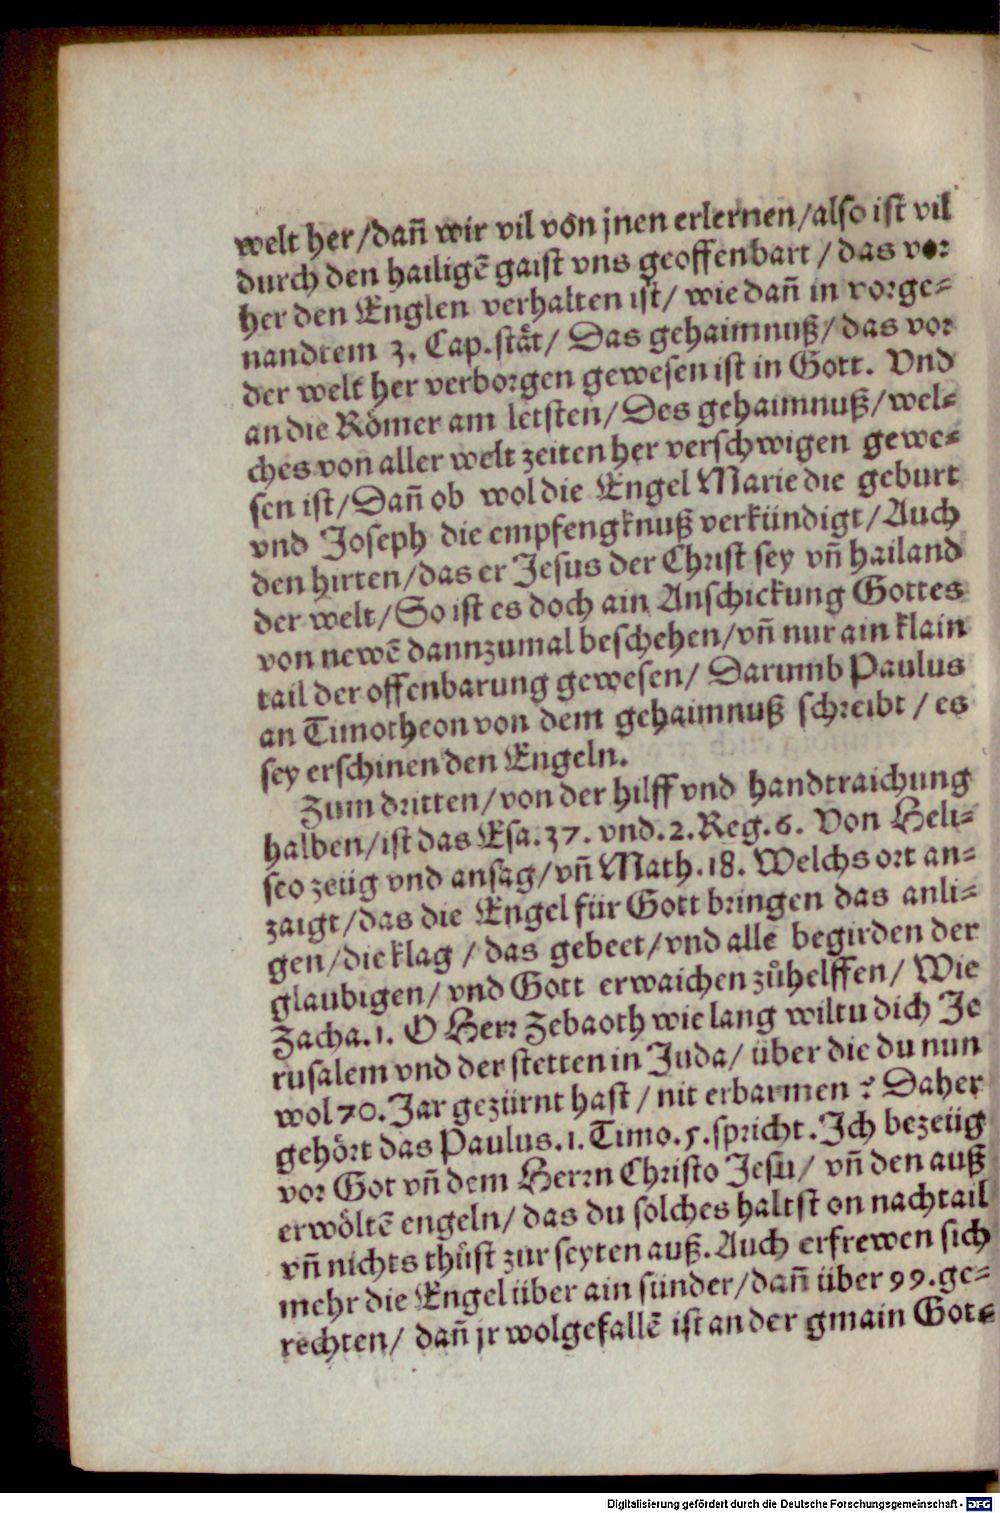 welt her/dañ wir vil von jnen erlernen/also ist vil
durch den hailigẽ gaist vns geoffenbart / das vor
her den Englen verhalten ist/ wie dañ in vorge=
nandtem 3. Cap.stät/ Das gehaimnuß/ das vor
der welt her verborgen gewesen ist in Gott. Vnd
an die Römer am letsten/Des gehaimnuß/wel=
ches von aller welt zeiten her verschwigen gewe=
sen ist/Dañ ob wol die Engel Marie die geburt
vnd Joseph die empfengknuß verkündigt/Auch
den hirten/das er Jesus der Christ sey vñ hailand
der welt/So ist es doch ain Anschickung Gottes
von newẽ dannzumal beschehen/vñ nur ain klain
tail der offenbarung gewesen/ Darumb Paulus
an Timotheon von dem gehaimnuß schreibt / es
sey erschinen den Engeln.
Zum dritten/von der hilff vnd handtraichung
halben/ist das Esa.37. vnd.2.Reg.6. Von Heli=
seo zeüg vnd ansag/vñ Math.18. Welchs ort an=
zaigt/das die Engel für Gott bringen das anli=
gen/die klag / das gebeet/vnd alle begirden der
glaubigen/ vnd Gott erwaichen zůhelffen/ Wie
Zacha.1. O Herr Zebaoth wie lang wiltu dich Je
rusalem vnd der stetten in Juda/ über die du nun
wol 70.Jar gezürnt hast / nit erbarmen ? Daher
gehört das Paulus.1.Timo.5.spricht.Ich bezeüg
vor Got vñ dem Herrn Christo Jesu/ vñ den auß
erwöltẽ engeln/ das du solches haltst on nachtail
vñ nichts thůst zur seyten auß.Auch erfrewen sich
mehr die Engel über ain sünder/dañ über 99.ge=
rechten/ dañ jr wolgefallẽ ist an der gmain Got=
Digitalisierung gefördert durch die Deutsche Forschungsgemeinschaft - DFG